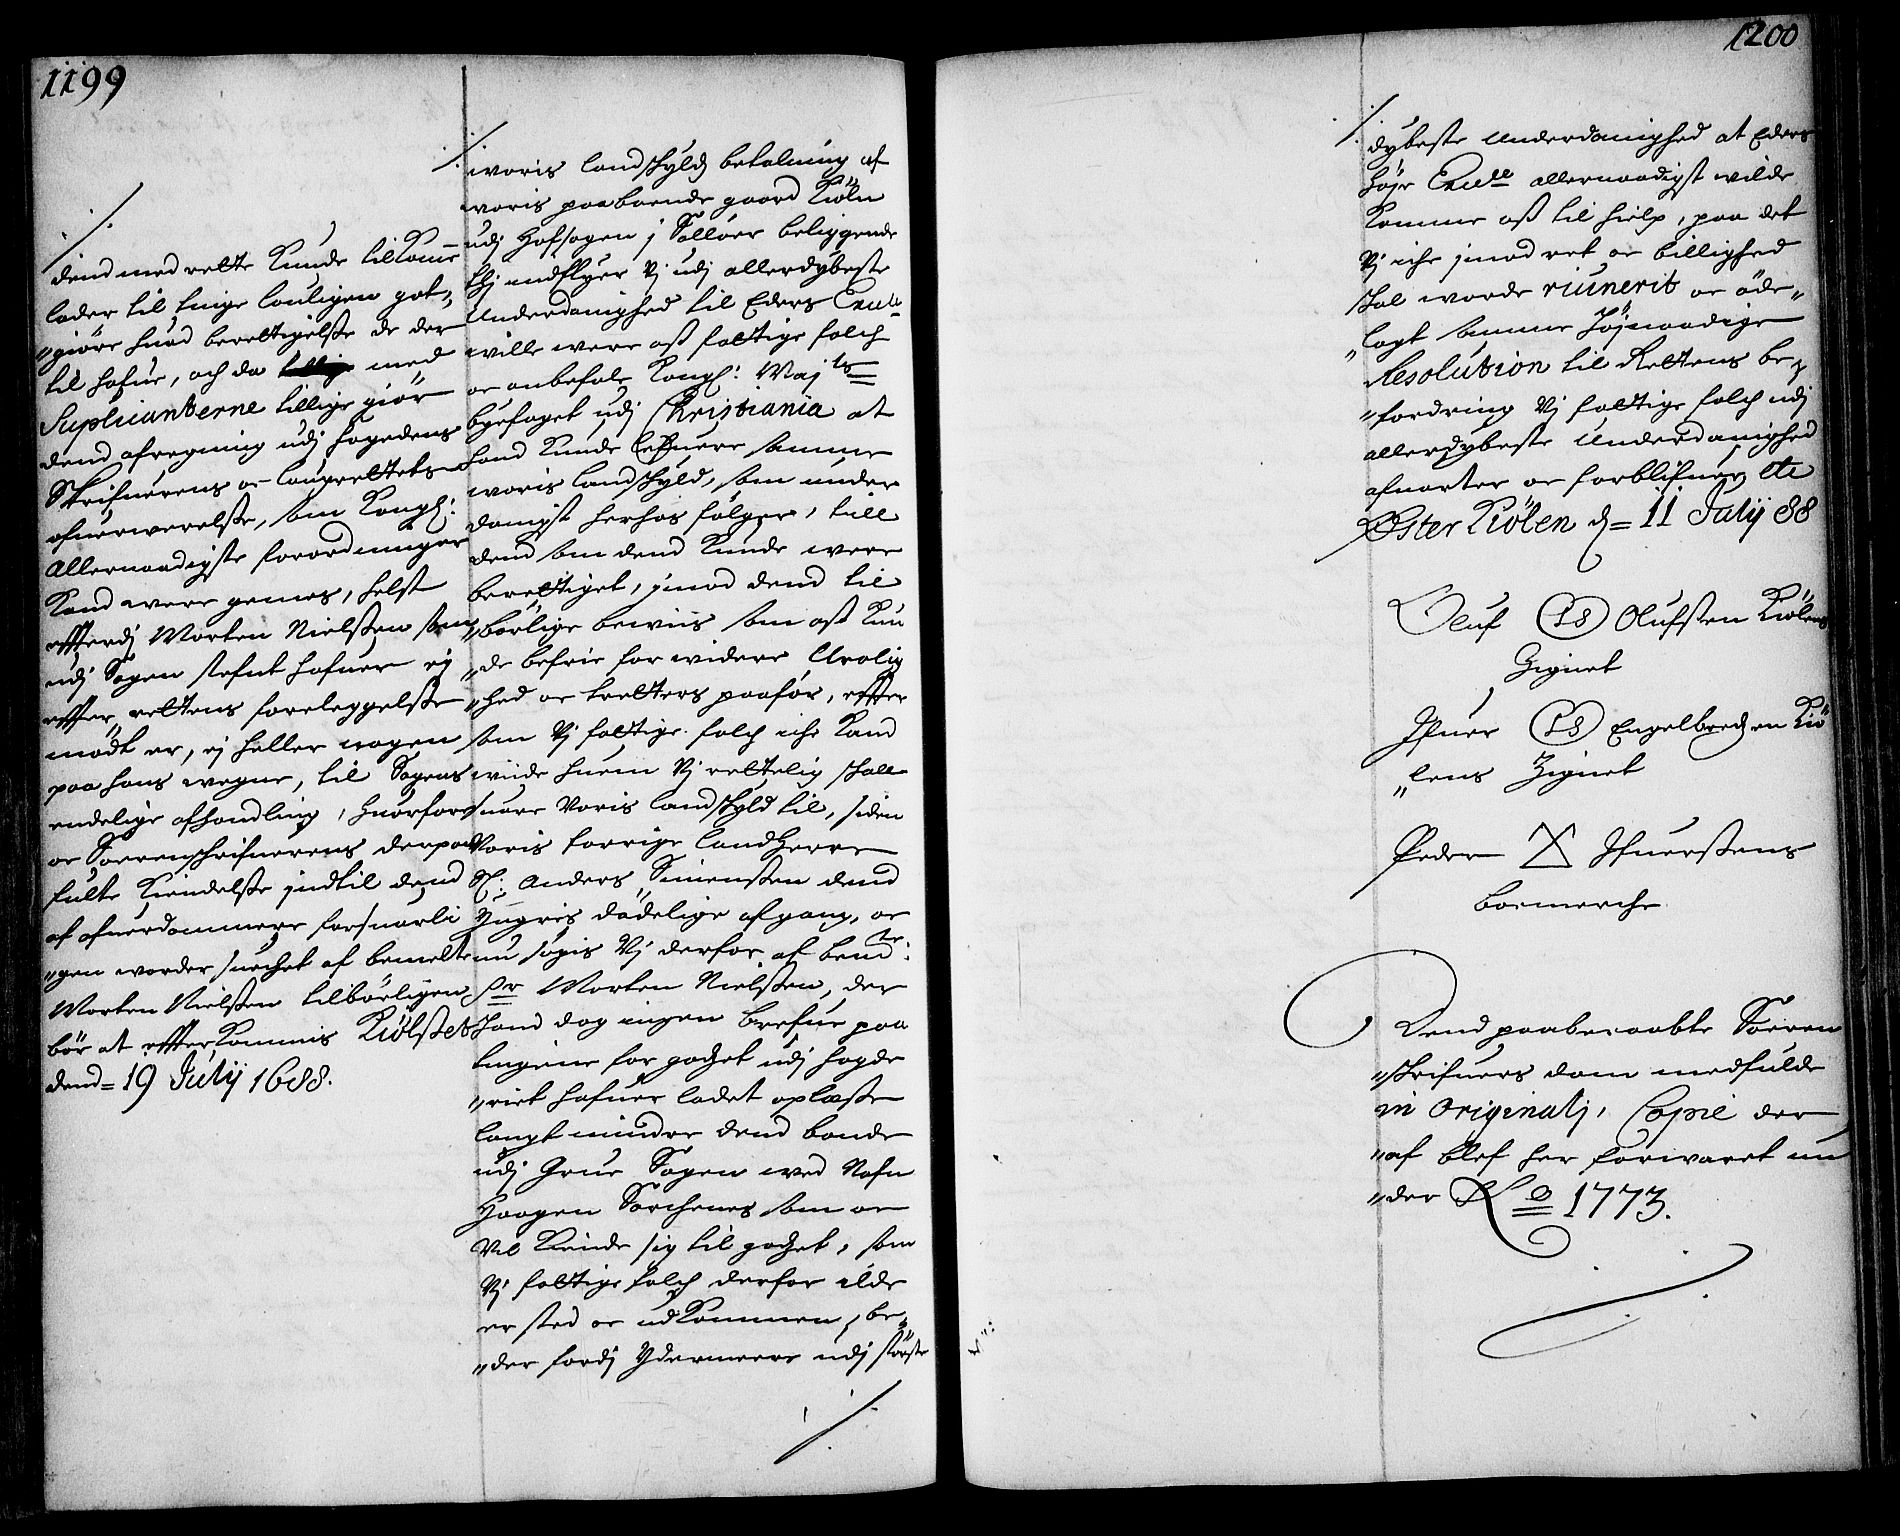 1199
./.
dend med rette kunde tilkom̅e
lader til tinge louligen got„
„giöre huad berettigelsse de der
til hafue, och da med
Suplicanterne tillige giör
dend afregning udj fogedens
Skrifuerens oc laugrettets
ofuerwerelsse, som Kongl:
allernaadigste forordninger
Kand were gemes, helst
effterdj Morten Nielssen som
udj Sagen stefnt hafuer ej
effter rettens foreleggelsse
mödt er, ej heller nogen
paa hans wegne, til Sagens
endelige afhandling, huorfore
oc Soerenschrifuerens derpaa
fulte Kiendelsse indtil dend
af ofuerdommere forsuarli
„gen worder suechet af bemelte
Morten Nielssen tilbörligen
bör at effterkommis Kiölstet
dend = 19 Julij 1688.
./.
woris landschyld betalning af
woris paaboende gaard Kiöln
udj Hofsogen j Sollöer beliggende
hej indflyer Vj udj allerdybeste
Underdanighed til Eders Excll
wille were oss fattige folch
oc anbefale Kongl: Maj ts
byefoget udj Christiania at
hand kunde lefuere samme
woris landschyld, som under
danigst herhos fölger, till
dend som dend kunde were
berettiget, jmod dend til
„börlige bewiis som oss kun
„de befrie for widere Urolig
„hed oc trettes paaför, effter
som Vj fattige folch iche kand
wiide huem Vj rettelig schall
suare Voris landschyld til, siden
Voris forrige landHerre
Sl: Anders Simenssen dend
Yngris dödelige afgang, oc
nu sögis Vj derfor af bem te:
Sr Morten Nielssen, der
hand dog ingen brefue paa
tingene for godset udj fogde
„riet hafuer ladet oplæsse
langt mindre dend bonde
udj Grue Sogen wed Nafn
Haagen Sorchenes som oc
vil kiende sig til godset, som
Vj fattige folch derfor ilde
er sted oc udkommen, be„
„der fordj Ydermeere udj störste
./.
1200
./.
dybeste Underdanighed at Eders
höje Excelle allernaadigst wilde
komme oss til hielp, paa det
Vj iche jmod ret oc billighed
skal worde riunerit oc öde„
„lagt samme Höjnaadige
Resolution til Rettens be„
„fordring Vj fattige folch udj
allerdybeste Underdanighed
afwarter oc forblifuer etc
Öster Kiölen d = 11 Julij 88
Oluf (LS) Olufsten Kiölens
Zignet
Jfuer (LS) Engelbredsen Kiö
„lens Zignet
Peder X Jfuerssens
boemerche
Dend paaberaabte Soeren
„skrifuers dom medfulde
in Originali, Copie der
„af blef her forwaret un
„der No 1773.
./.